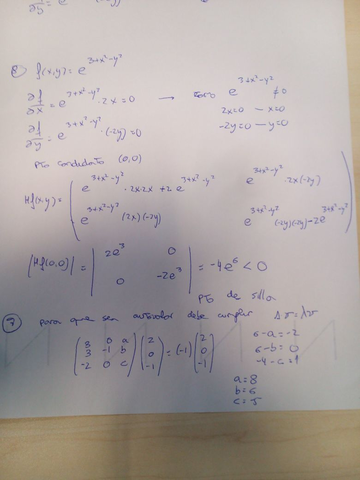 ∂f/∂y = e
8) f(x,y) = e^(3+x²-y²)
∂f/∂x = e^(3+x²-y²) · 2x = 0 → e^(3+x²-y²) ≠ 0
2x=0 – x=0
∂f/∂y = e^(3+x²-y²) · (-2y) = 0
-2y=0 – y=0
Pto candidato (0,0)
Hf(x,y) = ( e^(3+x²-y²) · 2x·2x + 2e^(3+x²-y²) e^(3+x²-y²) · 2x(-2y)
e^(3+x²-y²) (2x)(-2y) e^(3+x²-y²) (-2y)(-2y) - 2e^(3+x²-y²) )
|Hf(0,0)| = | 2e³ 0
0 -2e³ | = -4e⁶ < 0
Pto de silla
7) para que sea autovalor debe cumplir A v = λv
( 8 0 a
3 -1 b
-2 0 c ) ( 2
0
-1 ) = (-1) ( 2
0
-1 )
6-a=-2
6-b=0
-4-c=1
a=8
b=6
c=-5